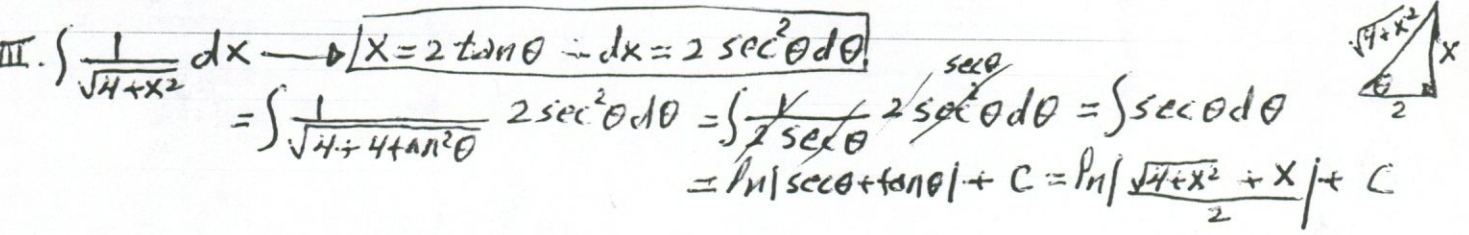 III. ∫ 1/√(4+x²) dx → x = 2 tanθ – dx = 2 sec²θ dθ
= ∫ 1/√(4+4tan²θ) 2sec²θ dθ = ∫ 1/(2 secθ) 2 sec²θ dθ secθ = ∫ secθ dθ
= ln|secθ+tanθ| + C = ln|(√(4+x²) + x)/2| + C
√4+x² x
θ
2